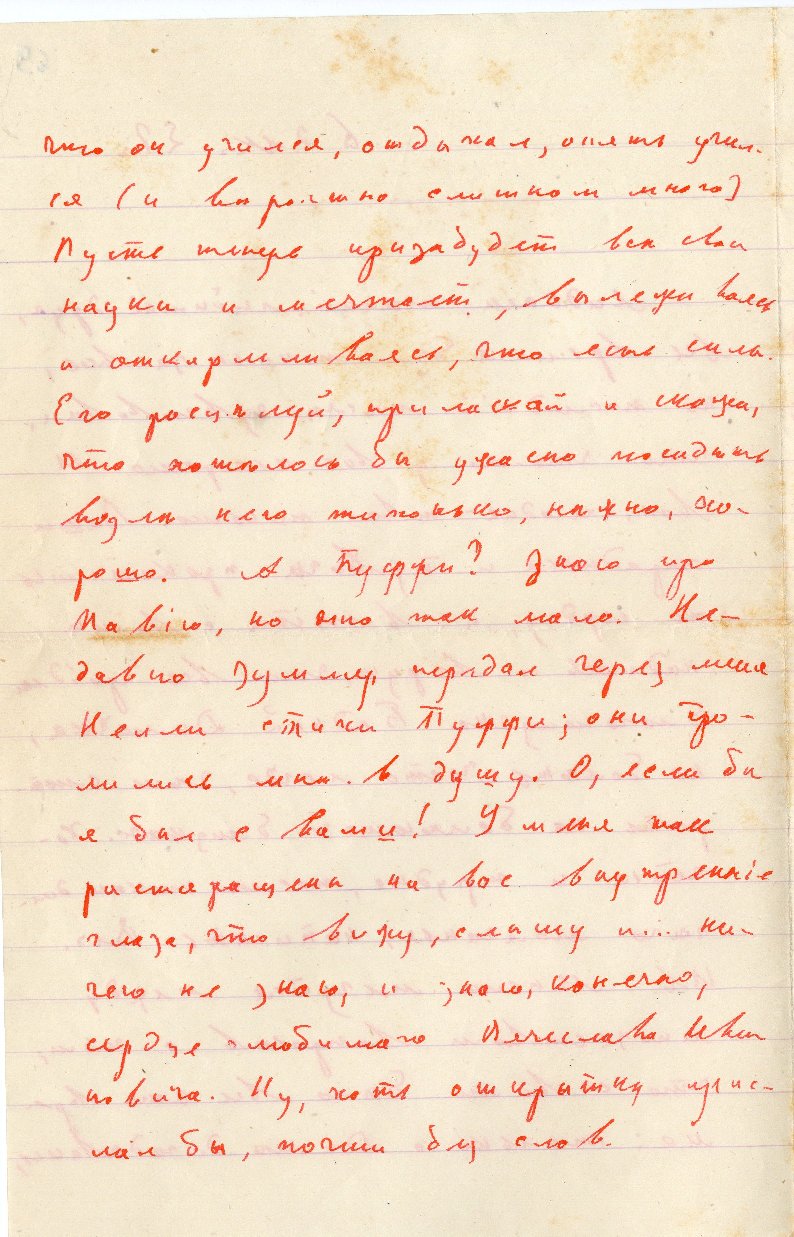 что он учился, отдыхал, опять учил-
ся (и вероятно слишком много)
Пусть теперь призабудет все свои
науки и мечтает, вылеживаясь
и откармливаясь, что есть силы.
Его расцелуй, приласкай и скажи,
что хотелось бы ужасно посидеть
возле него тихонько, нежно, хо-
рошо. А Пуффи? Знаю про
Павію, но это так мало. Не-
давно передал через меня
Нелли стихи Пуффи; они про-
лились мне в душу. О, если бы
я был с вами! У меня так
растаращены на вас внутренніе
глаза, что вижу, слышу и... ни-
чего не знаю, и знаю, конечно,
сердце любимаго Вячеслава Ивa-
новича. Ну, хоть открытку прис-
лал бы, почти без слов.